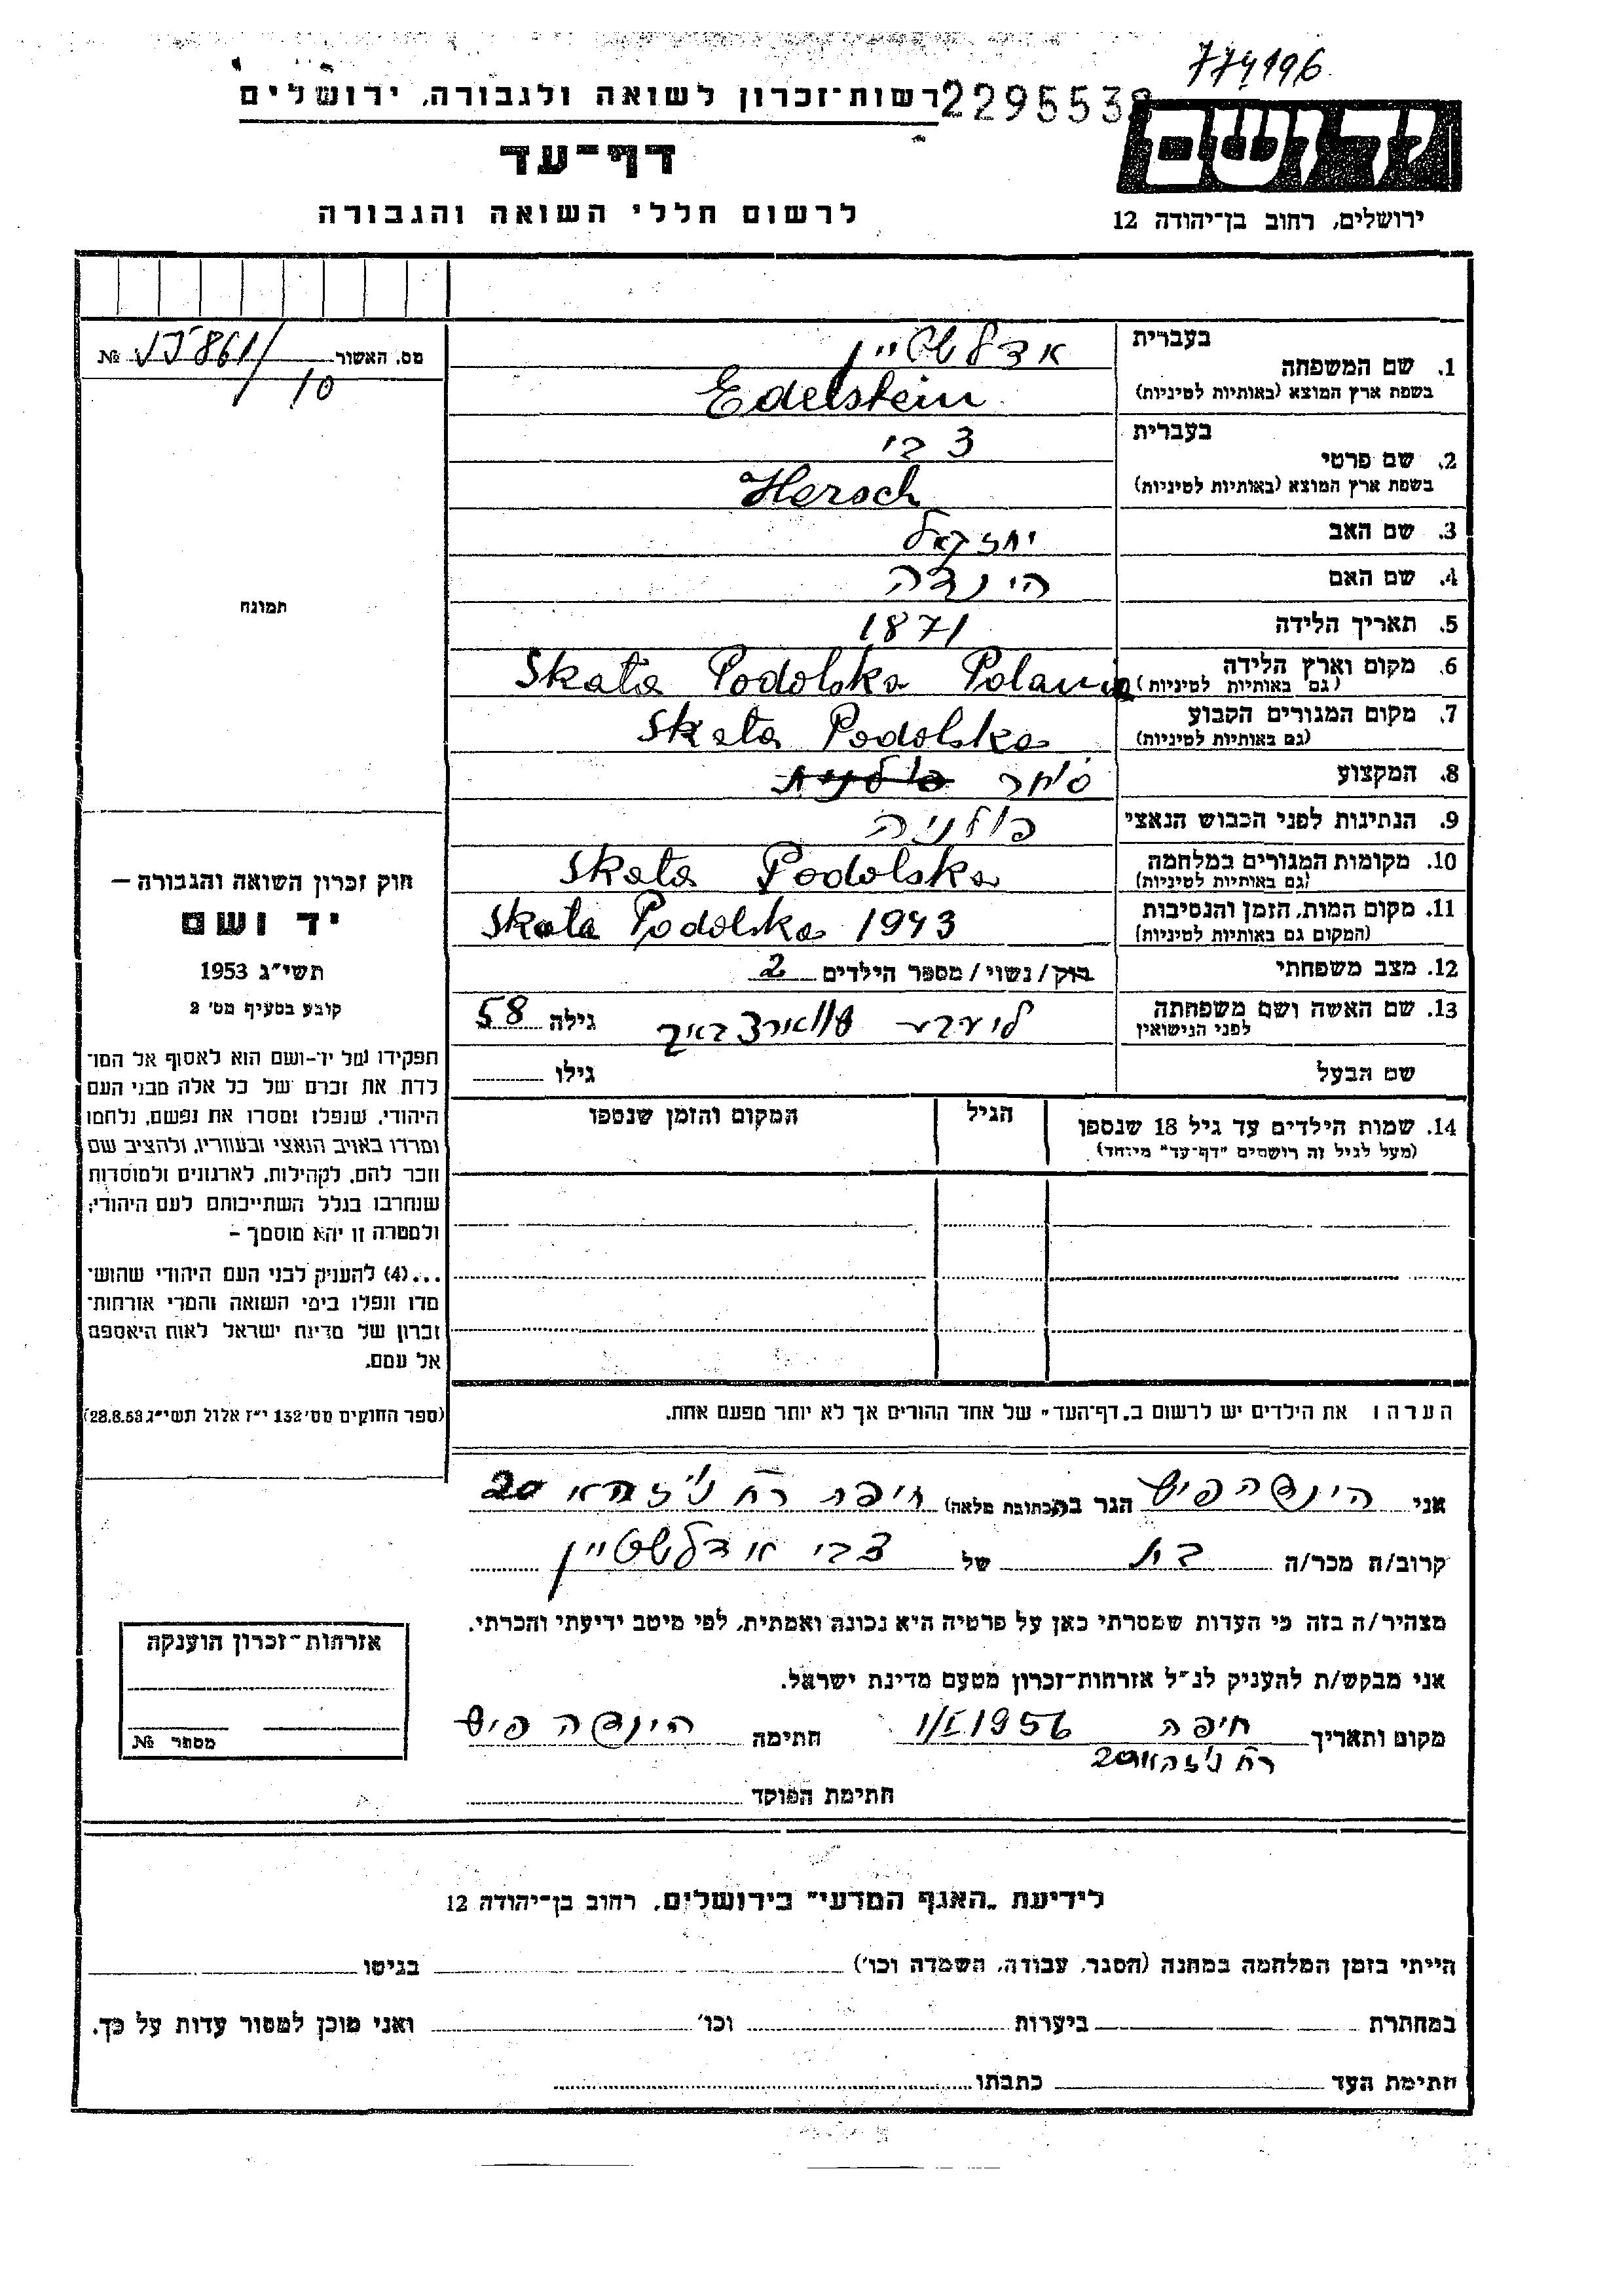 774196
רשות־זכרון לשואה ולגבורה, ירושלים
2295538
יד ושם
דף־עד
לרשום חללי השואה והגבורה
ירושלים, רחוב בן־יהודה 12
מס. האשור № 861/10
1. שם המשפחה בעברית אדלשטיין
בשפת ארץ המוצא (באותיות לטיניות) Edelstein
2. שם פרטי בעברית צבי
בשפת ארץ המוצא (באותיות לטיניות) Hersch
3. שם האב יחזקאל
4. שם האם הינדה
5. תאריך הלידה 1871
6. מקום וארץ הלידה (גם באותיות לטיניות) Skata Podolska Polania
7. מקום המגורים הקבוע (גם באותיות לטיניות) Skata Podolska
8. המקצוע סוחר
9. הנתינות לפני הכבוש הנאצי פולניה
10. מקומות המגורים במלחמה (גם באותיות לטיניות) Skata Podolska
11. מקום המות, הזמן והנסיבות (המקום גם באותיות לטיניות) Skata Podolska 1943
12. מצב משפחתי רוק/נשוי/מספר הילדים 2
13. שם האשה ושם משפחתה לפני הנישואין גילה 58
שם הבעל גילו
14. שמות הילדים עד גיל 18 שנספו הגיל המקום והזמן שנספו
(מעל לגיל זה רושמים "דף־עד" מיוחד)
תמונה
חוק זכרון השואה והגבורה –
יד ושם
תשי"ג 1953
קובע בסעיף מס' 2
תפקידו של יד-ושם הוא לאסוף אל המו־
לדת את זכרם של כל אלה מבני העם
היהודי, שנפלו ומסרו את נפשם, נלחמו
ומרדו באויב הנאצי ובעוזריו, ולהציב שם
וזכר להם, לקהילות, לארגונים ולמוסדות
שנחרבו בגלל השתייכותם לעם היהודי;
ולמטרה זו יהא מוסמך –
...(4) להעניק לבני העם היהודי שהוש־
מדו ונפלו בימי השואה והמרי אזרחות־
זכרון של מדינת ישראל לאות היאספם
אל עמם.
(ספר החוקים מס' 132 י"ז אלול תשי"ג 28.8.53)
הערה: את הילדים יש לרשום ב"דף־העד" של אחד ההורים אך לא יותר מפעם אחת.
אני הינדה פיש הגר ב(כתובת מלאה) חיפה רח 20
קרוב/ה מכר/ה בת של צבי אדלשטיין
מצהיר/ה בזה כי העדות שמסרתי כאן על פרטיה היא נכונה ואמתית, לפי מיטב ידיעתי והכרתי.
אני מבקש/ת להעניק לנ"ל אזרחות־זכרון מטעם מדינת ישראל.
מקום ותאריך חיפה 1/I 1956 חתימה הינדה פיש
רח 20
חתימת הפוקד
אזרחות־זכרון הוענקה
מספר №
לידיעת "האגף המדעי" בירושלים, רחוב בן־יהודה 12
הייתי בזמן המלחמה במחנה (הסגר, עבודה, השמדה וכו') בגיטו
במחתרת ביערות וכו' ואני מוכן למסור עדות על כך.
חתימת העד כתבתו